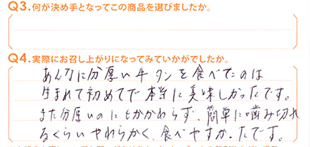 Q3.何が決め手となってこの商品を選びましたか。
Q4.実際にお召し上がりになってみていかがでしたか。
あんなに分厚い牛タンを食べたのは
生まれて初めてで本当に美味しかったです。
また分厚いのにもかかわらず、簡単に噛み切れ
るくらいやわらかく、食べやすかったです。